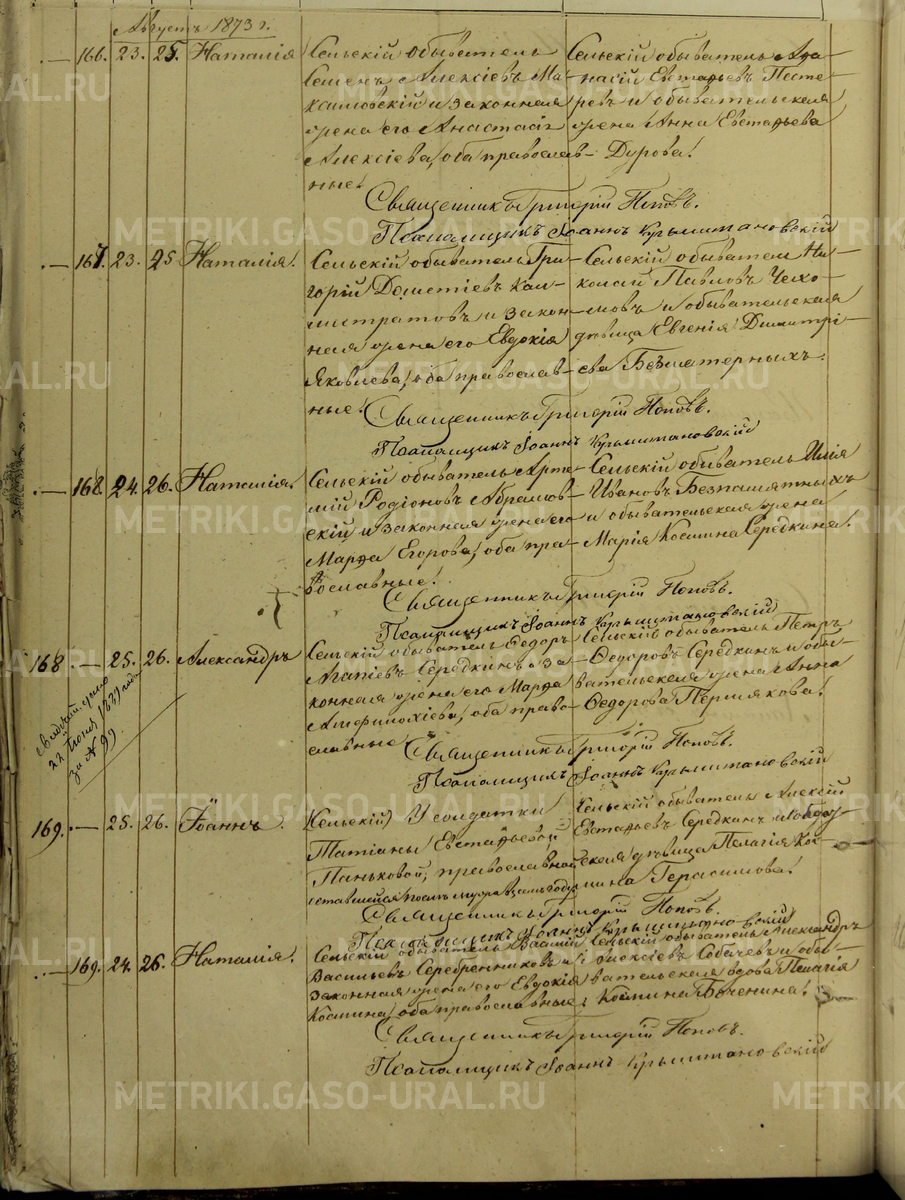 Августъ 1873 г.
166. 23. 25. Наталія
Сельскій обыватель
Семенъ Алексіевъ Ма-
каловскій и законная
жена его Анастасія
Алексіева, оба православ-
ные.
Сельскій обыватель Афа-
насій Евстафьевъ Пасте-
ревъ и обывательская
жена Анна Евстафьева
Дурова!
Священникъ Григорій Поповъ.
Псаломщикъ Іоаннъ Крыштановскій
167. 23. 25 Наталія!
Сельскій обыватель Гри-
горій Дометіевъ Кал-
истратовъ и закон-
ная жена его Евдокія
Яковлева, оба православ-
ные!
Сельскій обывател Ни-
колай Павловъ Чехо-
мовъ и обывательская
дѣвица Евгенія Димитрі-
ева Безматерныхъ.
Священникъ Григорій Поповъ.
Псаломщикъ Іоаннъ Крыштановскій
168. 24. 26. Наталія!
Сельскій обыватель Арте-
мій Родіоновъ Абрамов-
скій и законная жена его
Марфа Егорова, оба пра-
вославные!
Сельскій обыватель Илія
Ивановъ Безпамятныхъ
и обывательская жена
Марія Космина Середкина!
Священникъ Григорій Поповъ.
Псаломщикъ Іоаннъ Крыштановскій
168 — 25. 26. Александръ
22 Іюня
за № 99
Сельскій обыватель Ѳедоръ
Агапіевъ Середкинъ и за-
конная жена его Марфа
Амфилохіева, оба право-
славные
Сельскій обыватель Петръ
Ѳедоровъ Середкинъ и обы-
вательская жена Анна
Ѳедорова Пермякова!
Священникъ Григорій Поповъ.
Псаломщикъ Іоаннъ Крыштановскій
169. — 25. 26. Іоаннъ.
(Сельскій) У солдатки
Татіаны Евстафьевой
Паньковой, православной
Сельскій обыватель Алексій
Евстафьевъ Середкинъ и обыва-
ская дѣвица Пелагія Кос-
мина Герасимова!
Священникъ Григорій Поповъ.
Псаломщикъ Іоаннъ Крыштановскій
169. 24. 26. Наталія!
Сельскій обыватель Василій
Васильевъ Серебренниковъ и
законная жена его Евдокія
Космина, оба православные
Сельскій обыватель Александръ
Алексіевъ Собачевъ и обы-
вательская вдова Пелагія
Космина Боченина!
Священникъ Григорій Поповъ.
Псаломщикъ Іоаннъ Крыштановскій
METRIKI.GASO-URAL.RU